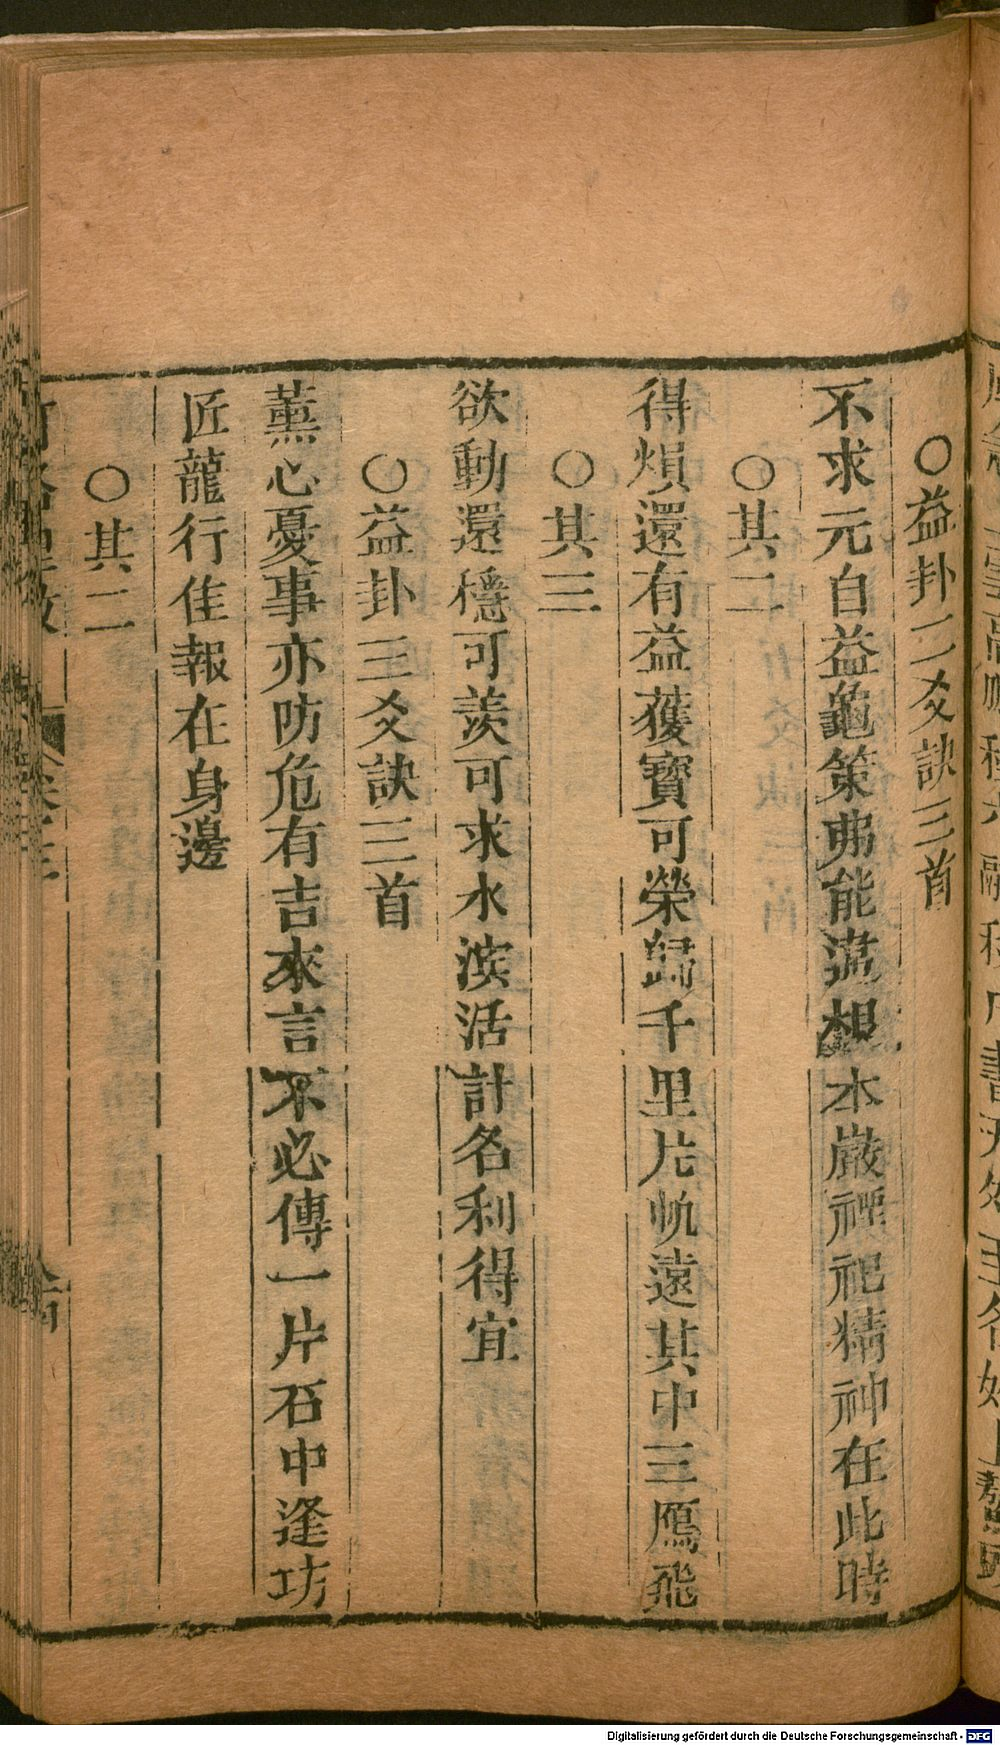 ○益卦二爻訣三首
不求元自益龜策弗能違想本嚴禋祀精神在此時
○其二
得煩還有益獲寶可榮歸千里片帆遠其中三鴈飛
○其三
欲動還穩可羨可求水濱活計名利得宜
○益卦三爻訣三首
薰心憂事亦防危有吉來言不必傳一片石中逢巧
匠龍行佳報在身邊
○其二
Digitalisierung gefördert durch die Deutsche Forschungsgemeinschaft - DFG